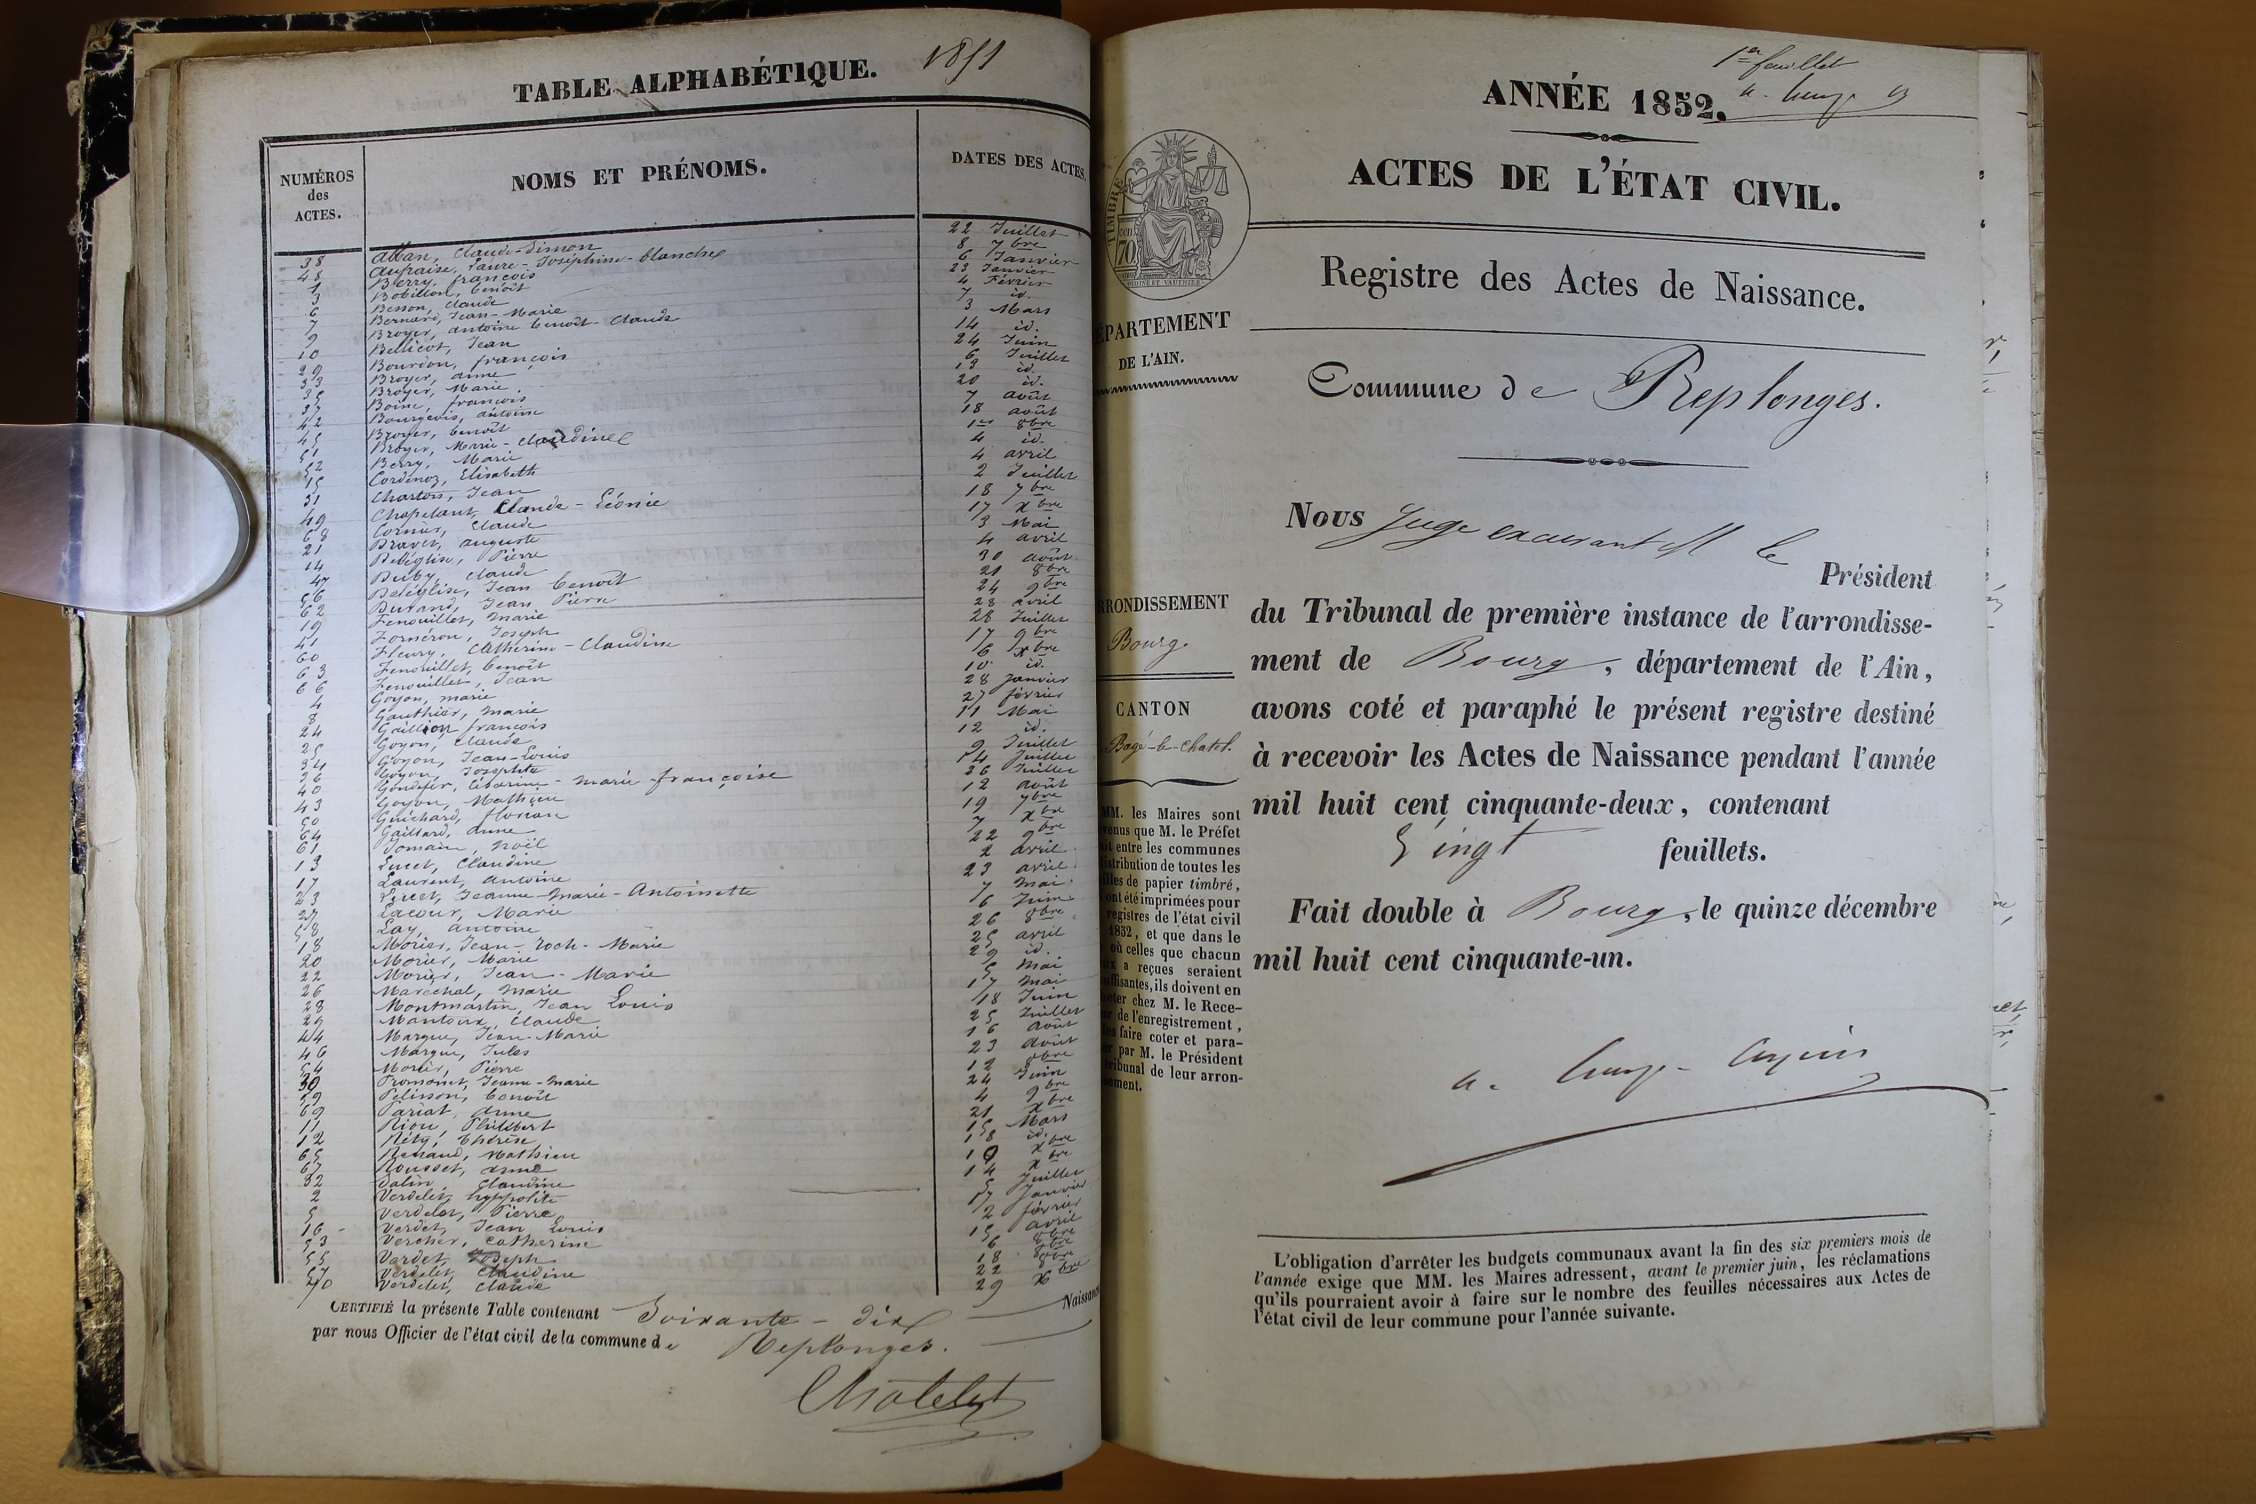 TABLE ALPHABÉTIQUE. 1851
NUMÉROS des ACTES. NOMS ET PRÉNOMS. DATES DES ACTES.
38 Alban, Claude-Simon 22 Juillet
48 Aufraise, Laure-Joséphine-blanche 8 7bre
1 Berry, françois 6 Janvier
3 Bobillon, benoît 23 Janvier
6 Besson, claude 4 Février
7 Bernard, Jean-Marie 7 id.
9 Broyer, antoine benoît-claude 3 Mars
10 Bellicot, Jean 14 id.
29 Bourdon, françois 24 Juin
33 Broyer, anne 6 Juillet
35 Broyer, Marie 13 id.
37 Boine, françois 20 id.
42 Bourgeois, antoine 7 août
45 Broyer, benoît 18 août
51 Broyer, Marie-claudine 1er 8bre
52 Berry, Marie 4 id.
15 Cordenoz, Elisabeth 4 avril
31 Charton, Jean 2 Juillet
49 Chapelant, Claude-Léonie 18 7bre
68 Cornier, claude 17 xbre
21 Bravet, auguste 3 Mai
14 Deléglise, Pierre 4 avril
47 Duby, claude 30 août
56 Deléglise, Jean benoît 21 8bre
62 Durand, Jean Pierre 24 9bre
19 Fenouillet, marie 28 avril
41 Forneron, Joseph 28 Juillet
60 Fleury, Catherine-Claudine 17 9bre
63 Fenouillet, benoît 6 xbre
66 Fenouillet, Jean 10 id.
4 Goyon, marie 28 janvier
8 Gauthier, marie 27 février
24 Gaillion, françois 11 Mai
25 Goyon, claude 12 id.
34 Goyon, Jean-Louis 9 Juillet
36 Goyon, Josephte 14 Juillet
40 marie françoise 26 Juillet
43 Goyon, Mathieu 12 août
50 Guichard, florian 19 7bre
64 Gaillard, anne 7 xbre
61 Jomain, noël 22 9bre
13 Lucet, Claudine 2 avril
17 Laurent, antoine 23 avril
23 Lucet, Jeanne-marie-Antoinette 7 mai
27 Lacour, Marie 6 Juin
58 Lay, antoine 26 8bre
18 Morier, Jean-Roch-Marie 25 avril
20 Morier, Marie 29 id.
22 Morier, Jean-Marie 5 Mai
26 Marechal, marie 17 mai
28 Montmartin, Jean Louis 18 Juin
39 Mantoux, claude 25 Juillet
44 Margue, Jean-Marie 16 août
46 Margue, Jules 23 août
54 Morier, Pierre 12 8bre
30 Promonet, Jeanne-marie 24 Juin
59 Pelisson, benoît 4 9bre
69 Pariat, anne 21 x
11 Riou, Philibert 15 Mars
12 Réty, thérèse 18 id.
65 Renaud, Mathieu 10 xbre
67 Rousset, anne 14 xbre
32 Salin, Claudine 5 Juillet
2 Verdelet, hyppolite 17 Janvier
5 Verdelet, Pierre 2 février
16 - Verdet, Jean Louis 15 avril
53 Vercher, Catherine 6 8bre
55 Verdet, Joseph 18 8bre
57 Verdelet, Claudine 22 8bre
70 Verdelet, claude 29 xbre
CERTIFIÉ la présente Table contenant Soixante-dix Naissances
par nous Officier de l'état civil de la commune de Replonges.
Chatelet
1er feuillet
ANNÉE 1852.
ACTES DE L'ÉTAT CIVIL.
TIMBRE
70
Registre des Actes de Naissance.
ÉPARTEMENT
DE L'AIN.
Commune de Replonges.
Nous Juge excusant M le Président
du Tribunal de première instance de l'arrondisse-
ment de Bourg, département de l'Ain,
avons coté et paraphé le présent registre destiné
à recevoir les Actes de Naissance pendant l'année
mil huit cent cinquante-deux, contenant
Vingt feuillets.
Fait double à Bourg, le quinze décembre
mil huit cent cinquante-un.
RRONDISSEMENT
Bourg.
CANTON
Bagé-le-chatel.
MM. les Maires sont
enus que M. le Préfet
it entre les communes
istribution de toutes les
lles de papier timbré,
ont été imprimées pour
registres de l'état civil
1852, et que dans le
où celles que chacun
ux a reçues seraient
uffisantes, ils doivent en
eter chez M. le Rece-
ur de l'enregistrement,
es faire coter et para-
er par M. le Président
ribunal de leur arron-
sement.
L'obligation d'arrêter les budgets communaux avant la fin des six premiers mois de
l'année exige que MM. les Maires adressent, avant le premier juin, les réclamations
qu'ils pourraient avoir à faire sur le nombre des feuilles nécessaires aux Actes de
l'état civil de leur commune pour l'année suivante.